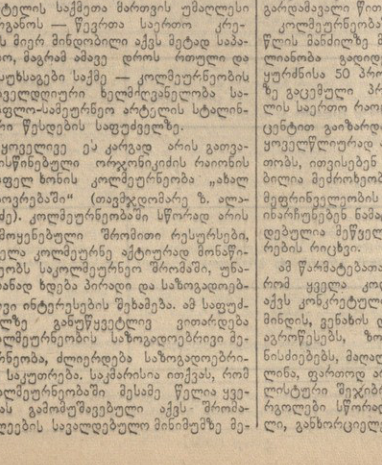 ტელის საქმეთა მართვის უმაღლესი
რგანოს — წევრთა საერთო კრე-
ს მიერ მინდობილი აქვს მეტად საპა-
ო, მაგრამ ამავე დროს რთული და
სუხსაგები საქმე — კოლმეურნეობის
ველდღიური ხელმძღვანელობა სა-
ფლო-სამეურნეო არტელის სტალინ-
რი წესდების საფუძველზე.
ყოველივე ეს კარგად არის გათვა-
ისწინებული ორჯონიკიძის რაიონის
ფელ ხონის კოლმეურნეობა „ახალ
ოვრებაში“ (თავმჯდომარე ზ. ალა-
ძე). კოლმეურნეობაში სწორად არის
მოყენებული შრომითი რესურსები,
ელა კოლმეურნე აქტიურად მონაწი-
ეობს საკოლმეურნეო შრომაში, უნა-
ანად ხდება პირადი და საზოგადოებ-
ვი ინტერესების შეხამება. ამ საფუძ-
ლზე განუწყვეტლივ ვითარდება
ოლმეურნეობის საზოგადოებრივი მე-
რნეობა, ძლიერდება საზოგადოებრი-
საკუთრება. საკმარისია ითქვას, რომ
ოლმეურნეობაში მესამე წელია ყვე-
ას გამომუშავებული აქვს შრომა-
ღეების სავალდებულო მინიმუმზე მე-
გარდამავალი წით
კოლმეურნეობა
წლის მანძილზე მ
ლიანობა გადიდ
ყურძნისა 50 პრო
ზე გაცემული პრ
ლის საერთო რაო
ცენტით გაიზარდ
ყოველწლიურად ა
თობს, ითვისებენ
ბილია მეძროხეობ
მეფრინველეობის
ინარჩუნებენ ნამა
დებულია მეწველ
რების რიცხვი.
ამ წარმატებათა
რომ ყველა კოლ
აქვს კონკრეტულ
მინდის, ვენახის დ
აგროწესებს, ზოო
ნისძიებებს, მაღა
ლინა, ფართოდ არ
ლისტური შეჯიბრ
რგოლები სწორად
ლი, განხორციელე